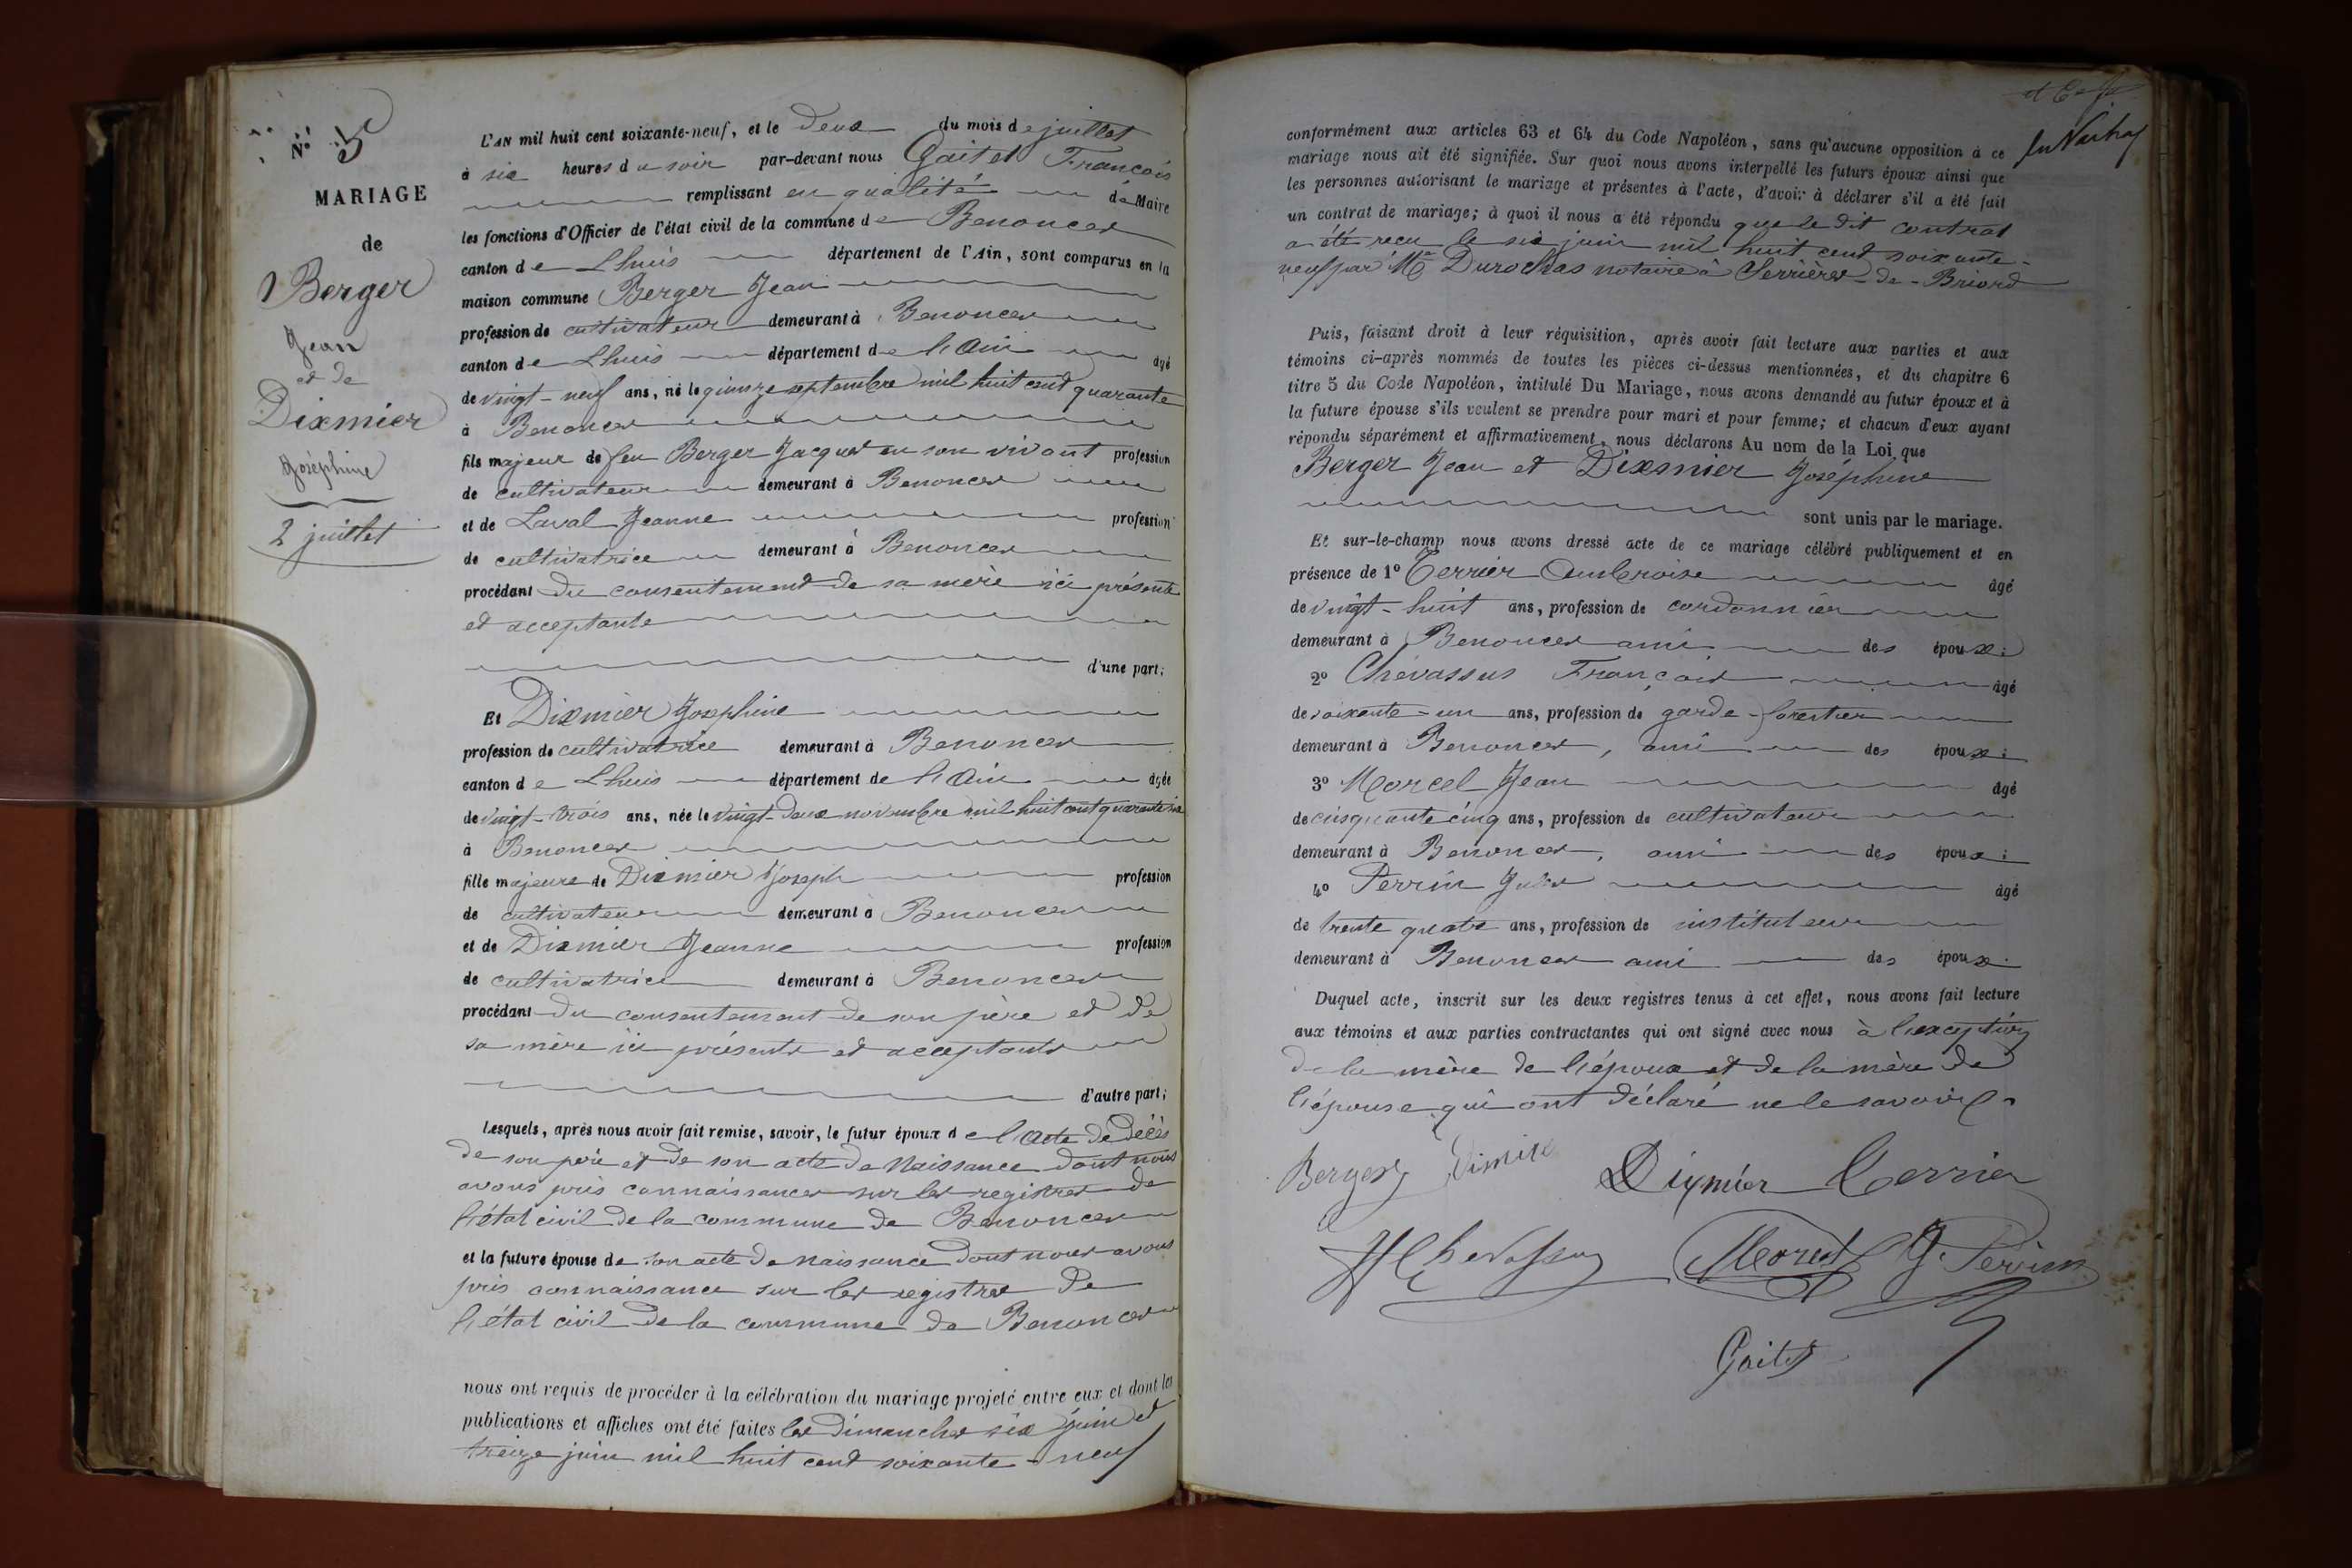 N° 5
MARIAGE
de
Berger
Jean
et de
Dixmier
Joséphine
2 juillet
L'AN mil huit cent soixante-neuf, et le deux du mois de juillet
à six heures du soir par-devant nous Gaitet François
remplissant en qualité de Maire
les fonctions d'Officier de l'état civil de la commune de Benonces
canton de Lhuis département de l'Ain, sont comparus en la
maison commune Berger Jean
profession de cultivateur demeurant à Benonces
canton de Lhuis département de l'Ain âgé
de vingt-neuf ans, né le quinze septembre mil huit cent quarante
à Benonces
fils majeur de feu Berger Jacques en son vivant profession
de cultivateur demeurant à Benonces
et de Laval Jeanne profession
de cultivatrice demeurant à Benonces
procédant du consentement de sa mère ici présente
et acceptante
d'une part;
Et Dixmier Joséphine
profession de cultivatrice demeurant à Benonces
canton de Lhuis département de l'Ain âgée
de vingt-trois ans, née le vingt-deux novembre mil huit cent quarante
à Benonces
fille majeure de Dixmier Joseph profession
de cultivateur demeurant à Benonces
et de Dixmier Jeanne profession
de cultivatrice demeurant à Benonces
procédant du consentement de son père et de
sa mère ici présents et acceptants
d'autre part;
Lesquels, après nous avoir fait remise, savoir, le futur époux de l'acte de décès
de son père et de son acte de naissance dont nous
avons pris connaissances sur les registres de
l'état civil de la commune de Benonces
et la future épouse de son acte de naissance dont nous avons
pris connaissance sur les registres de
l'état civil de la commune de Benonces
nous ont requis de procéder à la célébration du mariage projeté entre eux et dont les
publications et affiches ont été faites les Dimanches six juin et
treize juin mil huit cent soixante-neuf
conformément aux articles 63 et 64 du Code Napoléon, sans qu'aucune opposition à ce
mariage nous ait été signifiée. Sur quoi nous avons interpellé les futurs époux ainsi que
les personnes autorisant le mariage et présentes à l'acte, d'avoir à déclarer s'il a été fait
un contrat de mariage; à quoi il nous a été répondu que le dit contrat
a été reçu le six juin mil huit cent soixante-
neuf par Me Durochas notaire à Serrières-de-Briord
Puis, faisant droit à leur réquisition, après avoir fait lecture aux parties et aux
témoins ci-après nommés de toutes les pièces ci-dessus mentionnées, et du chapitre 6
titre 5 du Code Napoléon, intitulé Du Mariage, nous avons demandé au futur époux et à
la future épouse s'ils veulent se prendre pour mari et pour femme; et chacun d'eux ayant
répondu séparément et affirmativement, nous déclarons Au nom de la Loi que
Berger Jean et Dixmier Joséphine
sont unis par le mariage.
Et sur-le-champ nous avons dressé acte de ce mariage célébré publiquement et en
présence de 1° Terrier Ambroise âgé
de vingt-huit ans, profession de cordonnier
demeurant à Benonces ami des époux:
2° Chevassus François âgé
de soixante-un ans, profession de garde-forestier
demeurant à Benonces, ami des époux:
3° Morcel Jean âgé
de cinquante cinq ans, profession de cultivateur
demeurant à Benonces, ami des époux:
4° Perrin Jules âgé
de trente quatre ans, profession de instituteur
demeurant à Benonces ami des époux.
Duquel acte, inscrit sur les deux registres tenus à cet effet, nous avons fait lecture
aux témoins et aux parties contractantes qui ont signé avec nous à l'exception
de la mère de l'époux et de la mère de
l'épouse qui ont déclaré ne le savoir
Berger Dixmier Terrier
Chevassus Morcel J. Perrin
Gaitet